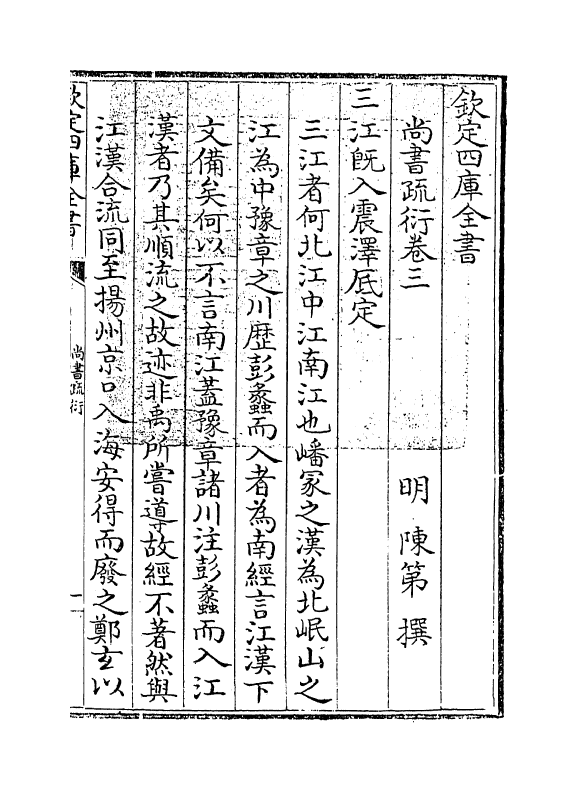 欽定四庫全書
尚書疏衍卷三　　　明　陳第　撰
三江既入震澤厎定
三江者何北江中江南江也嶓冢之漢為北岷山之
江為中豫章之川歴彭蠡而入者為南經言江漢下
文備矣何以不言南江葢豫章諸川注彭蠡而入江
漢者乃其順流之故迹非禹所嘗導故經不著然與
江漢合流同至揚州京口入海安得而廢之鄭𤣥以
欽定四庫全書
尚書疏衍
一